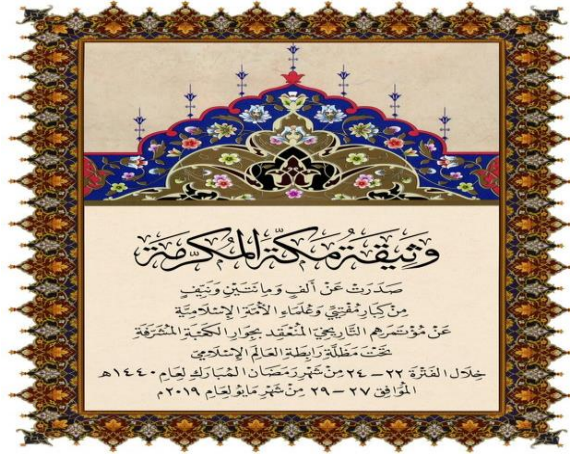 وَثِيقَةُ مَكَّةَ المُكَرَّمَةِ
صَدَرَتْ عَنْ أَلْفٍ وَمِائَتَيْنِ وَنَيِّفٍ
مِنْ كِبَارِ مُفْتِيِّ وَعُلَمَاءِ الأُمَّةِ الإِسْلَامِيَّةِ
عَنْ مُؤْتَمَرِهِم التَّارِيخِيِّ المُنْعَقِدِ بِجِوَارِ الكَعْبَةِ المُشَرَّفَةِ
تَحْتَ مَظَلَّةِ رَابِطَةِ العَالَمِ الإِسْلَامِيِّ
خِلَالَ الفَتْرَةِ ٢٢ – ٢٤ مِنْ شَهْرِ رَمَضَانَ المُبَارَكِ لِعَامِ ١٤٤٠هـ
المُوَافِقِ ٢٧ – ٢٩ مِنْ شَهْرِ مَايُو لِعَامِ ٢٠١٩م